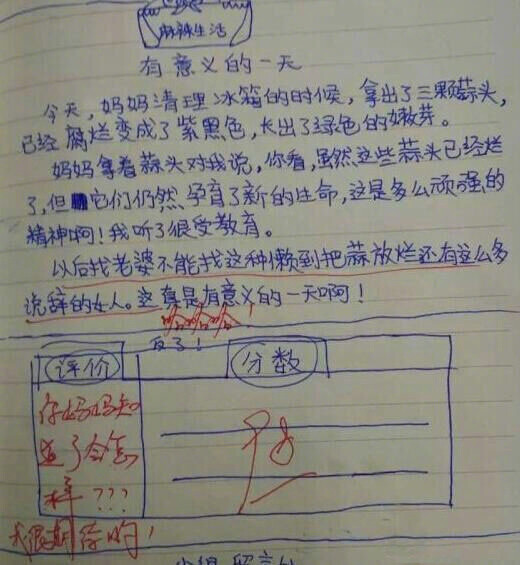 麻辣生活
有意义的一天
今天，妈妈清理冰箱的时候，拿出了三颗蒜头，
已经腐烂变成了紫黑色，长出了绿色的嫩芽。
妈妈拿着蒜头对我说，你看，虽然这些蒜头已经烂
了，但它们仍然孕育了新的生命，这是多么顽强的
精神啊！我听了很受教育。
以后找老婆不能找这种懒到把蒜放烂还有这么多
说辞的女人。这真是有意义的一天啊！
哈哈哈
反了！
评价
分数
你妈妈知
道了会怎
样？？？
我很期待哟！